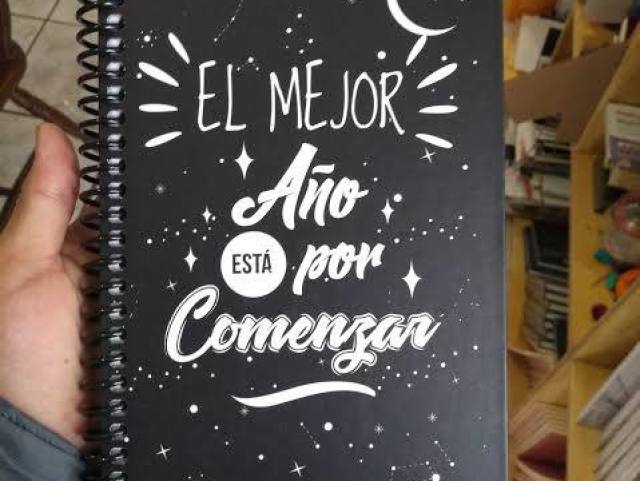 EL MEJOR
Año
ESTÁ por
Comenzar